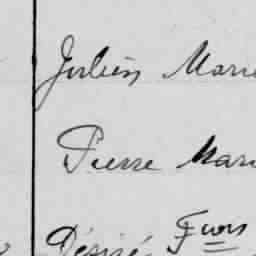 Julien Marie
Pierre Mari
Désiré Fçois